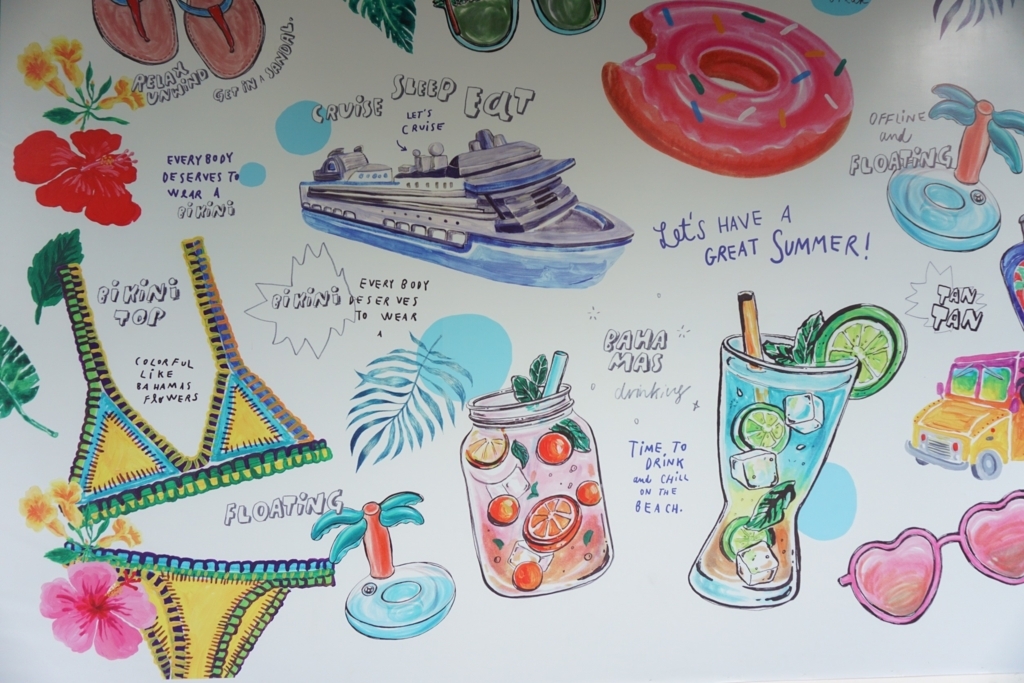 RELAX
UNWIND
GET IN A SANDAL.
CRUISE SLEEP EAT
LET'S
CRUISE
OFFLINE
and
FLOATING
EVERYBODY
DESERVES TO
WEAR A
BIKINI
Let's HAVE A
GREAT SUMMER!
BIKINI
TOP
BIKINI
EVERY BODY
DESERVES
TO WEAR
A
TAN
TAN
COLORFUL
LIKE
BAHAMAS
FLOWERS
BAHA
MAS
drinking
TIME TO
DRINK
and CHILL
ON THE
BEACH.
FLOATING